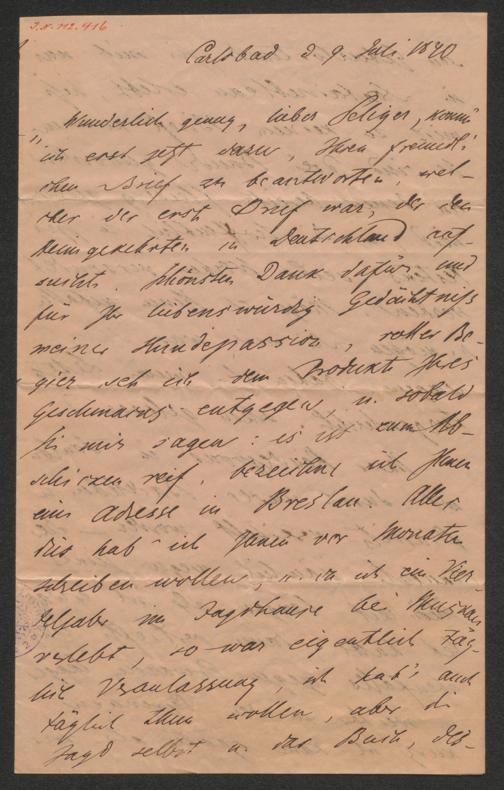 I.N. 112.416
Carlsbad d. 9. Juli 1890.
Wunderlich genug, lieber Seliger, komm'
ich erst jetzt dazu, Ihren freundli-
chen Brief zu beantworten, wel-
cher der erste Brief war, der den
Heimgekehrten in Deutschland auf-
suchte. Schönsten Dank dafür und
für Ihr liebenswürdig Gedächtniß
meiner Hundepassion, voller Be-
gier seh ich dem Produkte Ihres
Geschmacks entgegen, u. sobald
Sie mir sagen: es ist zum Ab-
schicken reif, bezeichne ich Ihnen
eine Adresse in Breslau. Alles
dies hab' ich Ihnen vor Monaten
schreiben wollen, u. da ich ein Vier-
teljahr im Jagdhause bei Muskau
verlebt, so war eigentlich täg-
lich Veranlassung, ich hab's auch
täglich thun wollen, aber die
Jagd selbst u. das Buch, des-